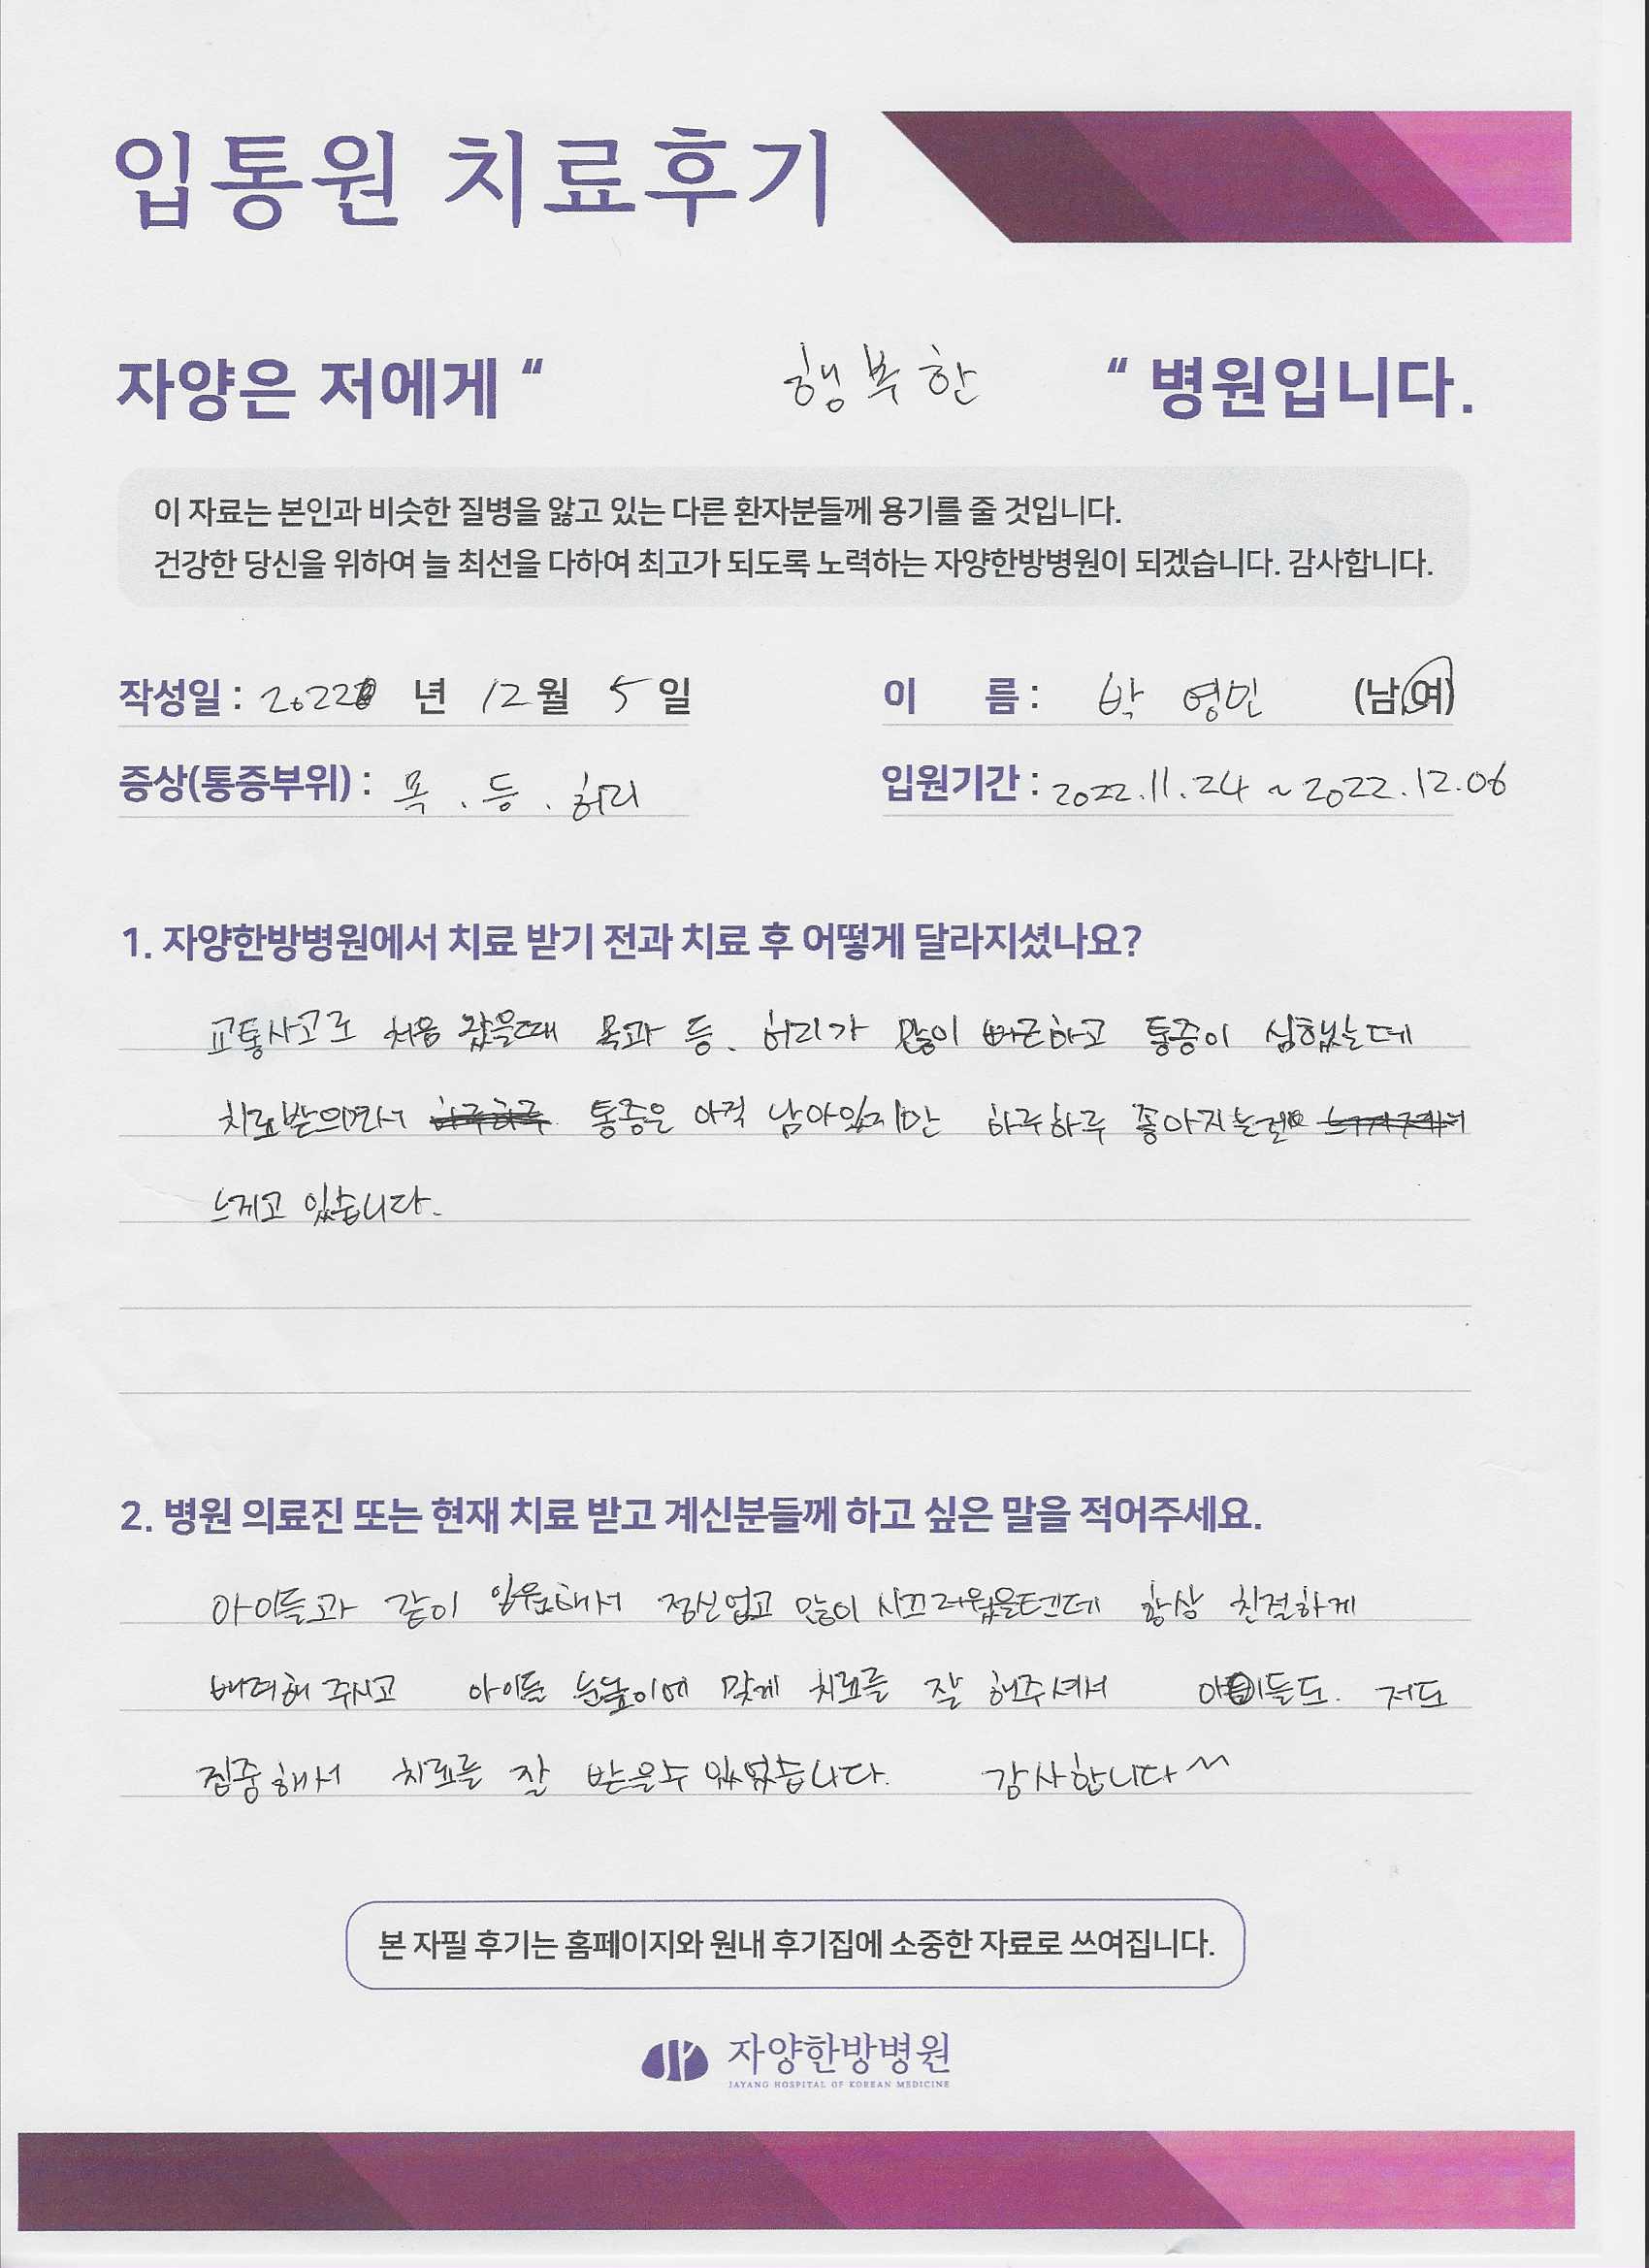 입통원 치료후기
자양은 저에게 “ 행복한 “ 병원입니다.
이 자료는 본인과 비슷한 질병을 앓고 있는 다른 환자분들께 용기를 줄 것입니다.
건강한 당신을 위하여 늘 최선을 다하여 최고가 되도록 노력하는 자양한방병원이 되겠습니다. 감사합니다.
작성일 : 2022 년 12월 5일
이 름 : 박 영민 (남,여)
증상(통증부위) : 목 . 등 . 허리
입원기간 : 2022.11.24 ~ 2022.12.06
1. 자양한방병원에서 치료 받기 전과 치료 후 어떻게 달라지셨나요?
교통사고로 처음 왔을때 목과 등. 허리가 많이 뻐근하고 통증이 심했는데
치료받으면서 통증은 아직 남아있지만 하루하루 좋아지는걸
느끼고 있습니다.
2. 병원 의료진 또는 현재 치료 받고 계신분들께 하고 싶은 말을 적어주세요.
아이들과 같이 입원해서 정신없고 많이 시끄러웠을텐데 항상 친절하게
배려해 주시고 아이들 눈높이에 맞게 치료를 잘 해주셔서 아이들도. 저도
집중해서 치료를 잘 받을수 있었습니다. 감사합니다~
본 자필 후기는 홈페이지와 원내 후기집에 소중한 자료로 쓰여집니다.
자양한방병원
JAYANG HOSPITAL OF KOREAN MEDICINE